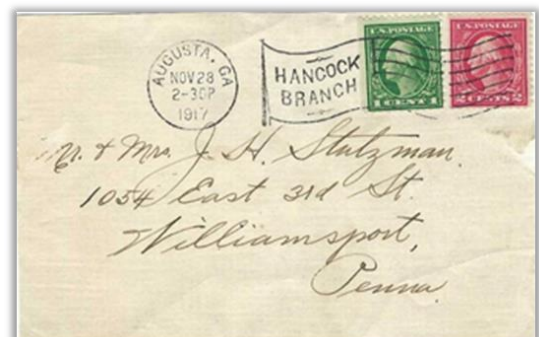 AUGUSTA, GA
NOV 28
2-30P
1917
HANCOCK
BRANCH
U.S. POSTAGE
1 CENT 1
U.S. POSTAGE
2 CENTS 2
Mr. & Mrs. J. H. Stutzman.
1054 East 3rd St.
Williamsport,
Penna.